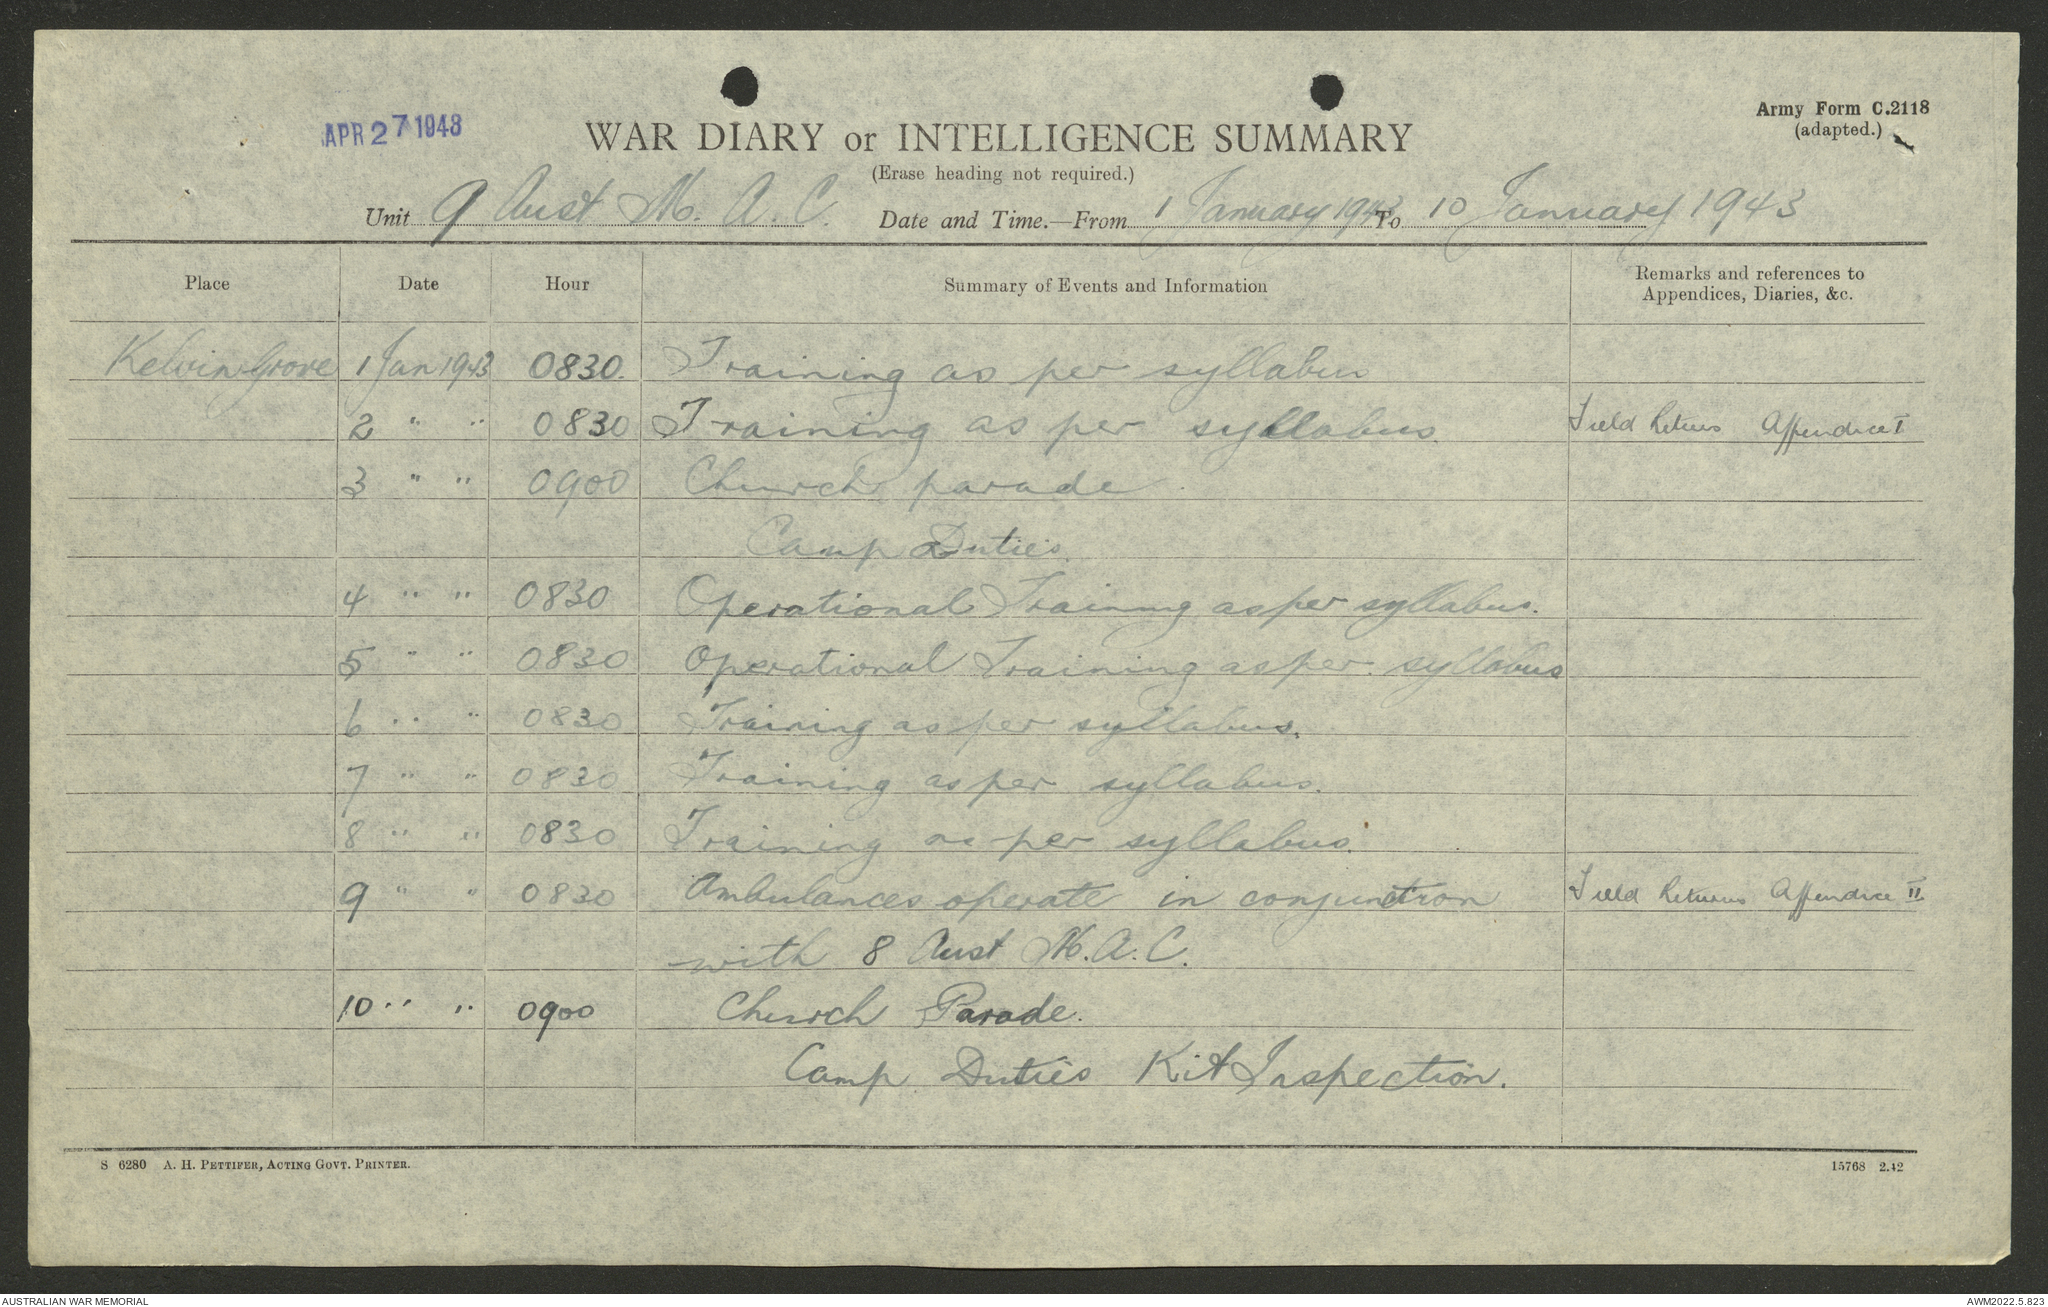 APR 27 1943
Army Form C.2118
(adapted.)
WAR DIARY or INTELLIGENCE SUMMARY
(Erase heading not required.)
Unit 9 Aust M.A.C. Date and Time.—From 1 January 1943 To 10 January 1943
Place Date Hour Summary of Events and Information Remarks and references to
Appendices, Diaries, &c.
Kelvin Grove 1 Jan 1943 0830. Training as per syllabus
2 " " 0830 Training as per syllabus. Field Returns Appendice I
3 " " 0900 Church parade.
Camp Duties.
4 " " 0830 Operational Training as per syllabus.
5 " " 0830 Operational Training as per syllabus
6 " " 0830 Training as per syllabus.
7 " " 0830 Training as per syllabus.
8 " " 0830 Training as per syllabus.
9 " " 0830 Ambulances operate in conjunction Field Returns Appendice II
with 8 Aust M.A.C.
10 " " 0900 Church Parade.
Camp Duties Kit Inspection.
S 6280 A. H. PETTIFER, ACTING GOVT. PRINTER. 15768 2.42
AUSTRALIAN WAR MEMORIAL AWM2022.5.823